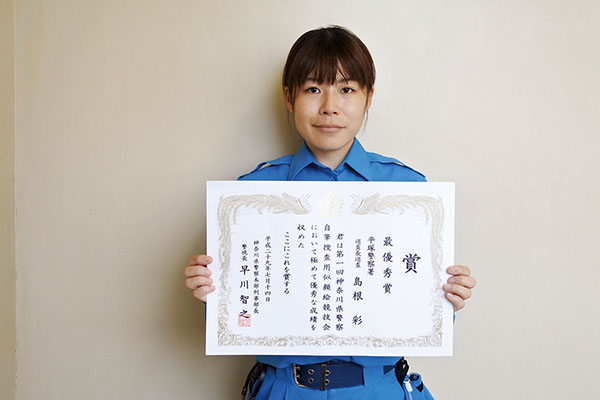 賞
最優秀賞
平塚警察署
巡査長巡査
島根 彩
君は第一回神奈川県警察
自筆捜査用似顔絵競技会
において極めて優秀な成績を
収めた
ここにこれを賞する
平成二十九年七月十四日
神奈川県警察本部刑事部長
警視長 早川智之